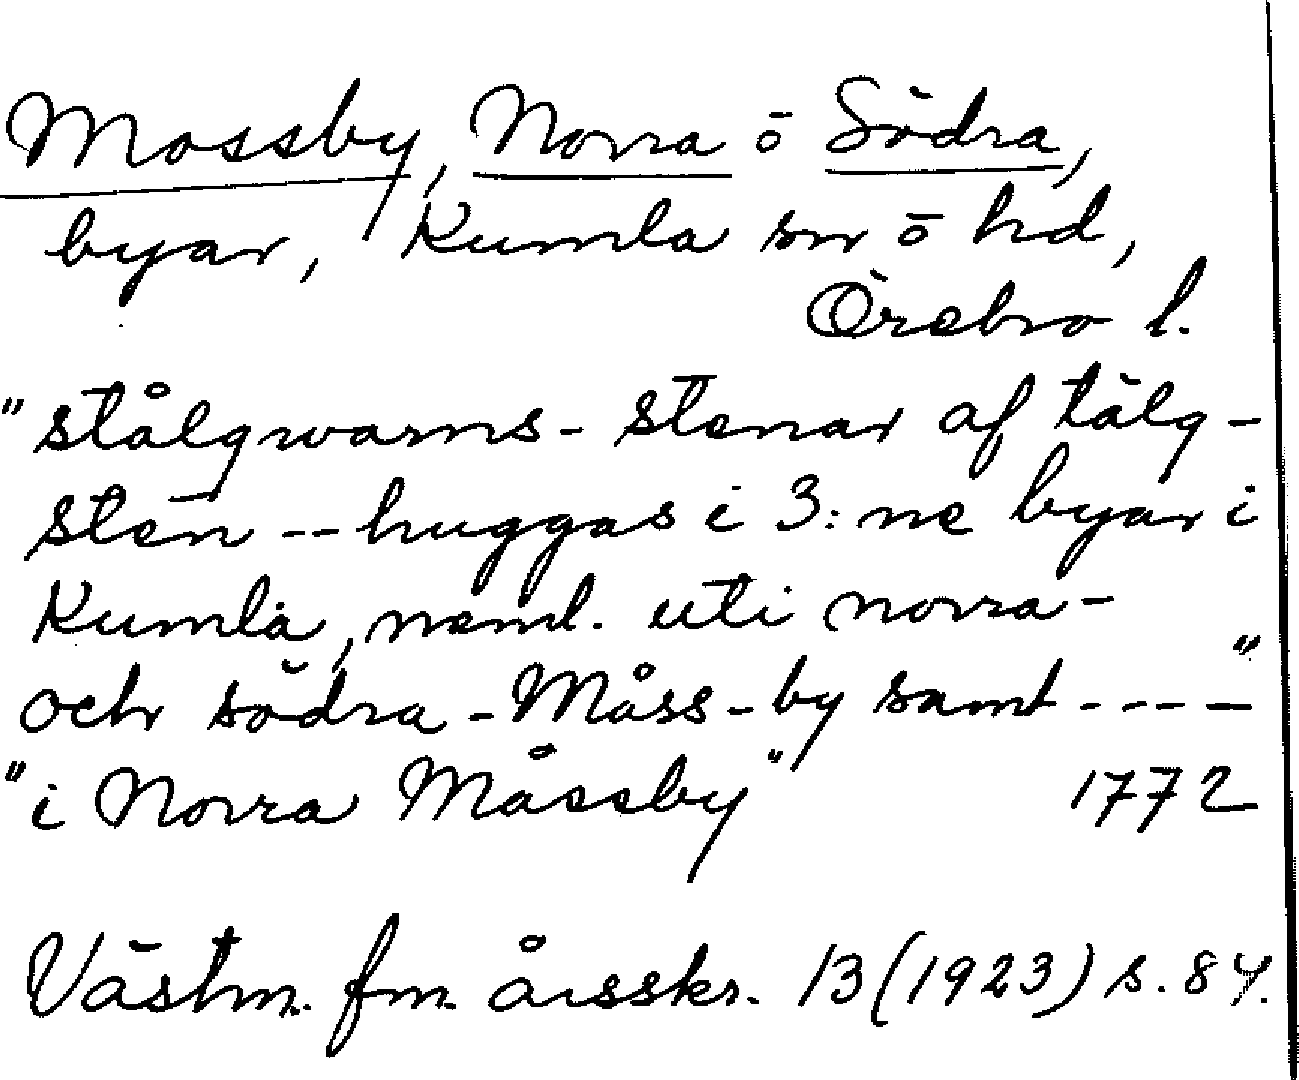 Mossby, Norra o Södra,
byar, Kumla sn o hd,
Örebro l.
"stålqwarns-stenar af tälg-
sten -- huggas i 3:ne byar i
Kumla, neml. uti norra-
och södra-Måss-by samt ---- "
"i Norra Måssby" 1772
Västm. fm. årsskr. 13 (1923) s. 84.